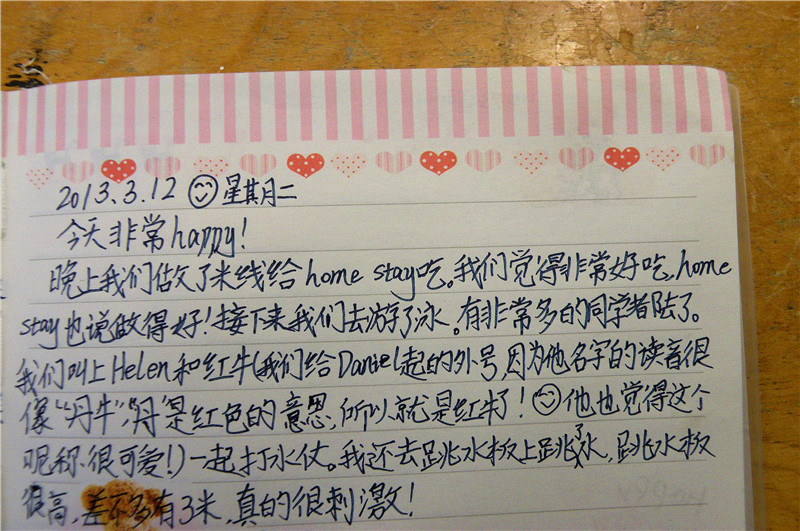 2013.3.12 星期二
今天非常happy!
晚上我们做了米线给home stay吃。我们觉得非常好吃,home
stay也说做得好!接下来我们去游了泳。有非常多的同学都去了。
我们叫上Helen和红牛(我们给Daniel起的外号,因为他名字的读音很
像“丹牛”,“丹”是红色的意思,所以就是红牛了!他也觉得这个
昵称很可爱!)一起打水仗。我还去跳水板上跳了水,跳水板
很高,差不多有3米,真的很刺激!